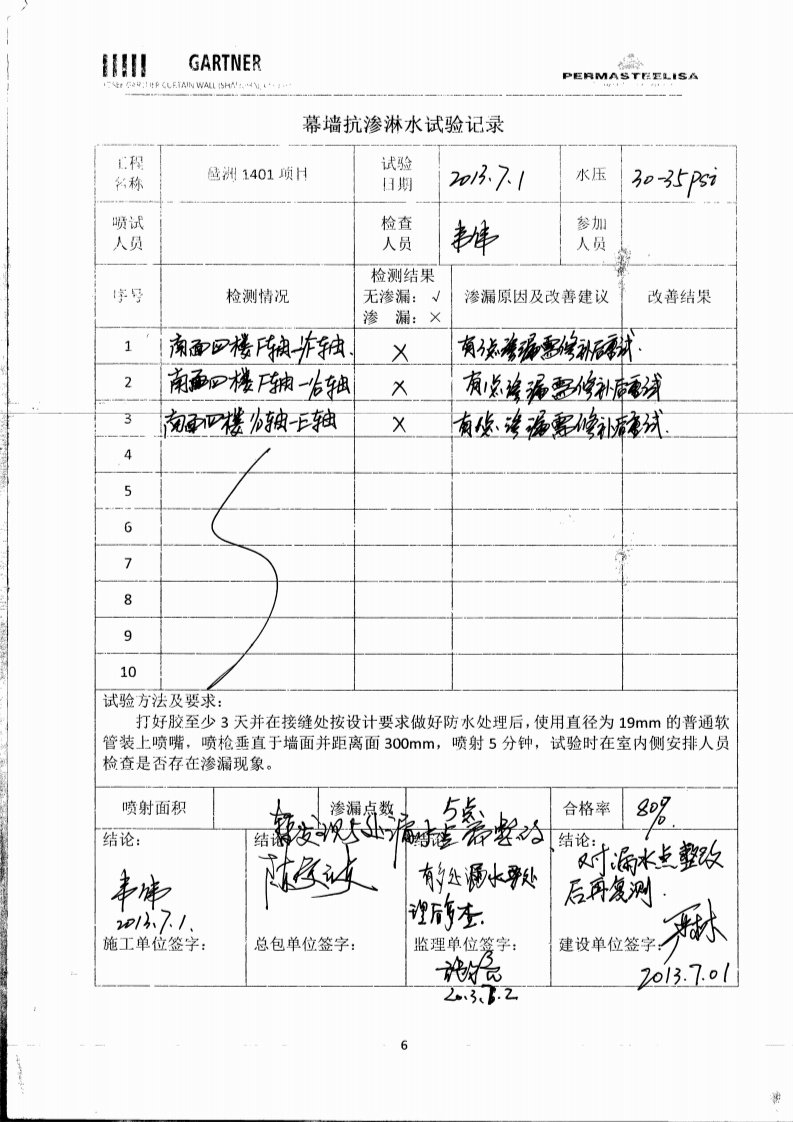 GARTNER
PERMASTEELISA
幕墙抗渗淋水试验记录
工程名称 琶洲 1401 项目 试验日期 2013.7.1 水压 30-35psi
喷试人员 检查人员 韦伟 参加人员
序号 检测情况 检测结果 无渗漏：√ 渗 漏：× 渗漏原因及改善建议 改善结果
1 南面四楼F轴-1/F轴. × 有3点渗漏需修补后重试.
2 南面四楼F轴-1/G轴 × 有1点渗漏需修补后重试
3 南面四楼 轴-E轴 × 有1点渗漏需修补后重试.
4
5
6
7
8
9
10
试验方法及要求：
打好胶至少 3 天并在接缝处按设计要求做好防水处理后，使用直径为 19mm 的普通软
管装上喷嘴，喷枪垂直于墙面并距离面 300mm，喷射 5 分钟，试验时在室内侧安排人员
检查是否存在渗漏现象。
喷射面积 渗漏点数 5点 合格率 80%
结论：
韦伟
2013.7.1.
施工单位签字：
结论：
发现5处漏
总包单位签字：
结论：
有多处漏水要处
理后
监理单位签字：
结论：
对漏水点整改
后再复测.
建设单位签字：
2013.7.01
6